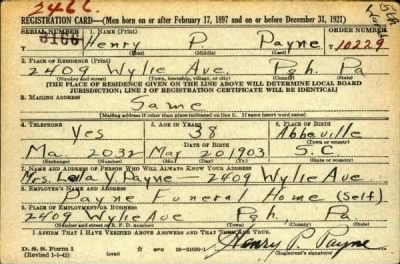 2466
REGISTRATION CARD—(Men born on or after February 17, 1897 and on or before December 31, 1921)
SERIAL NUMBER 1. NAME (Print) ORDER NUMBER
3166 Henry P Payne 10229
(First) (Middle) (Last)
2. PLACE OF RESIDENCE (Print)
2409 Wylie Ave Pgh. Pa
(Number and street) (Town, township, village, or city) (County) (State)
[THE PLACE OF RESIDENCE GIVEN ON THE LINE ABOVE WILL DETERMINE LOCAL BOARD
JURISDICTION; LINE 2 OF REGISTRATION CERTIFICATE WILL BE IDENTICAL]
3. MAILING ADDRESS
Same
[Mailing address if other than place indicated on line 2. If same insert word same]
4. TELEPHONE 5. AGE IN YEARS 6. PLACE OF BIRTH
Yes 38 Abbeville
DATE OF BIRTH (Town or county)
Ma 2032 Mar 20 1903 S.C.
(Exchange) (Number) (Mo.) (Day) (Yr.) (State or country)
7. NAME AND ADDRESS OF PERSON WHO WILL ALWAYS KNOW YOUR ADDRESS
Mrs. Lella V. Payne 2409 Wylie Ave
8. EMPLOYER'S NAME AND ADDRESS
Payne Funeral Home (Self)
9. PLACE OF EMPLOYMENT OR BUSINESS
2409 Wylie Ave Pgh, Pa.
(Number and street or R. F. D. number) (Town) (County) (State)
I AFFIRM THAT I HAVE VERIFIED ABOVE ANSWERS AND THAT THEY ARE TRUE.
Henry P. Payne
D. S. S. Form 1
(Revised 1-1-42) (over) GPO (Registrant's signature)